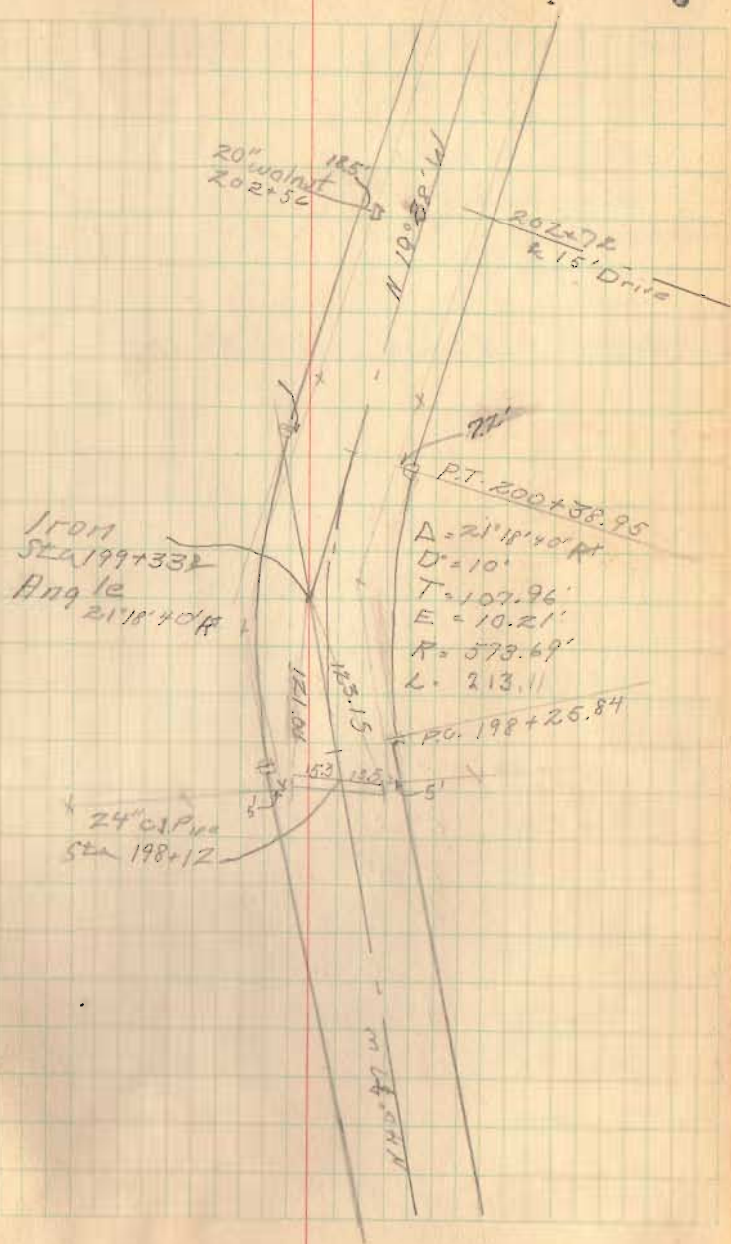 20" walnut
202+56
18.5'
N 19°28' W
202+72
15' Drive
P.T. 200+38.95
Δ = 21°18'40" Rt
D = 10°
T = 107.96'
E = 10.21'
R = 573.69'
L = 213.11
P.C. 198+25.84
Iron
Sta 199+33
Angle
21°18'40" Rt
121.00
123.15
15.3
13.5
5'
5'
24" C.I. Pipe
Sta 198+12